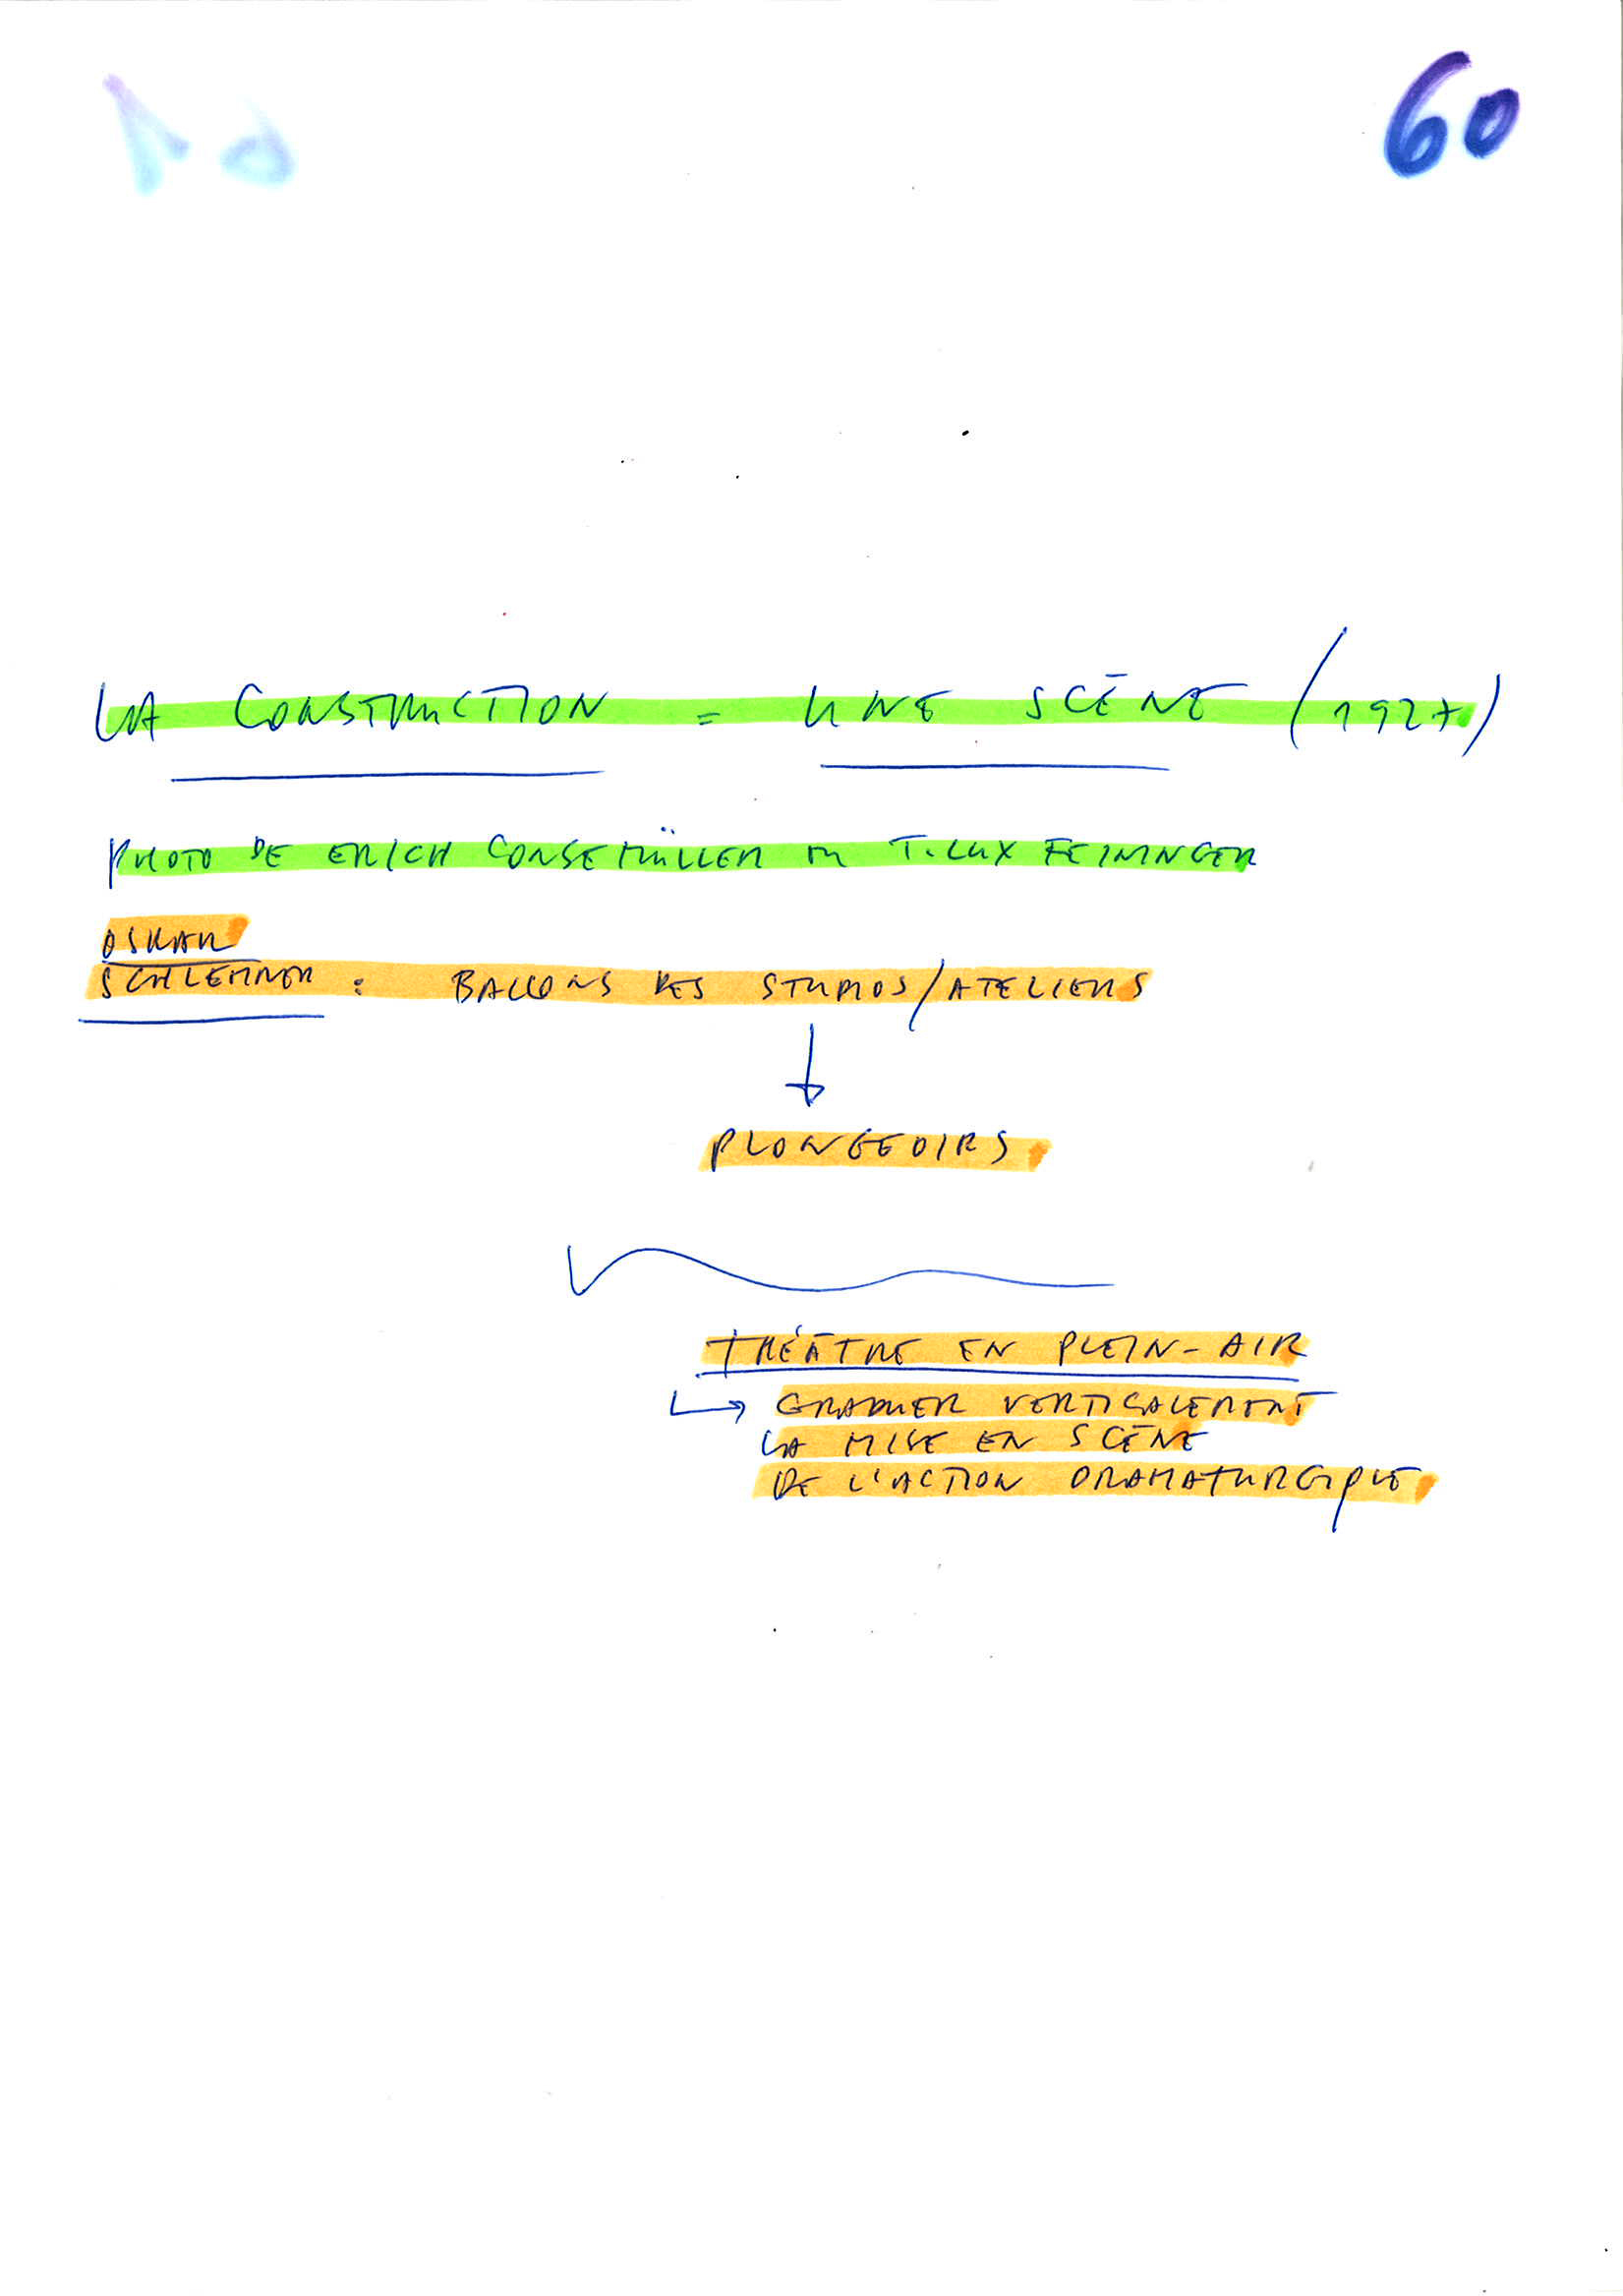 60
LA CONSTRUCTION = UNE SCÈNE (1927)
PHOTO DE ERICH CONSEMÜLLER OU T. LUX FEININGER
OSKAR
SCHLEMMER : BALCONS DES STUDIOS/ATELIERS
PLONGEOIRS
THÉÂTRE EN PLEIN-AIR
GRADUER VERTICALEMENT
LA MISE EN SCÈNE
DE L'ACTION DRAMATURGIQUE